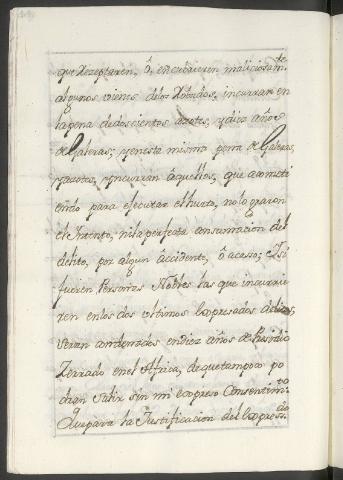 que Rezeptaren, ô, encubrieren maliciosam.te
algunos vienes delos Robados, incurran en
la pena de doscientos azotes, y diez años
de Galeras; y en esta misma pena de Galeras,
y azotes, yncurran àquellos, que acometi
endo para efecutar el hurto, no lo graron
el Yntento, ni la perfecta consumacion del
delito, por algun àccidente, ô acasso; Y si
fueren Personas Nobles las que incurrie
ren en los dos ultimos expresados delitos,
seran condenados en diez años de Presidio
Zerrado en el Africa, de que tampoco po
dran salir syn mi expreso Consentim.to
Que para la Justificacion del expres.do